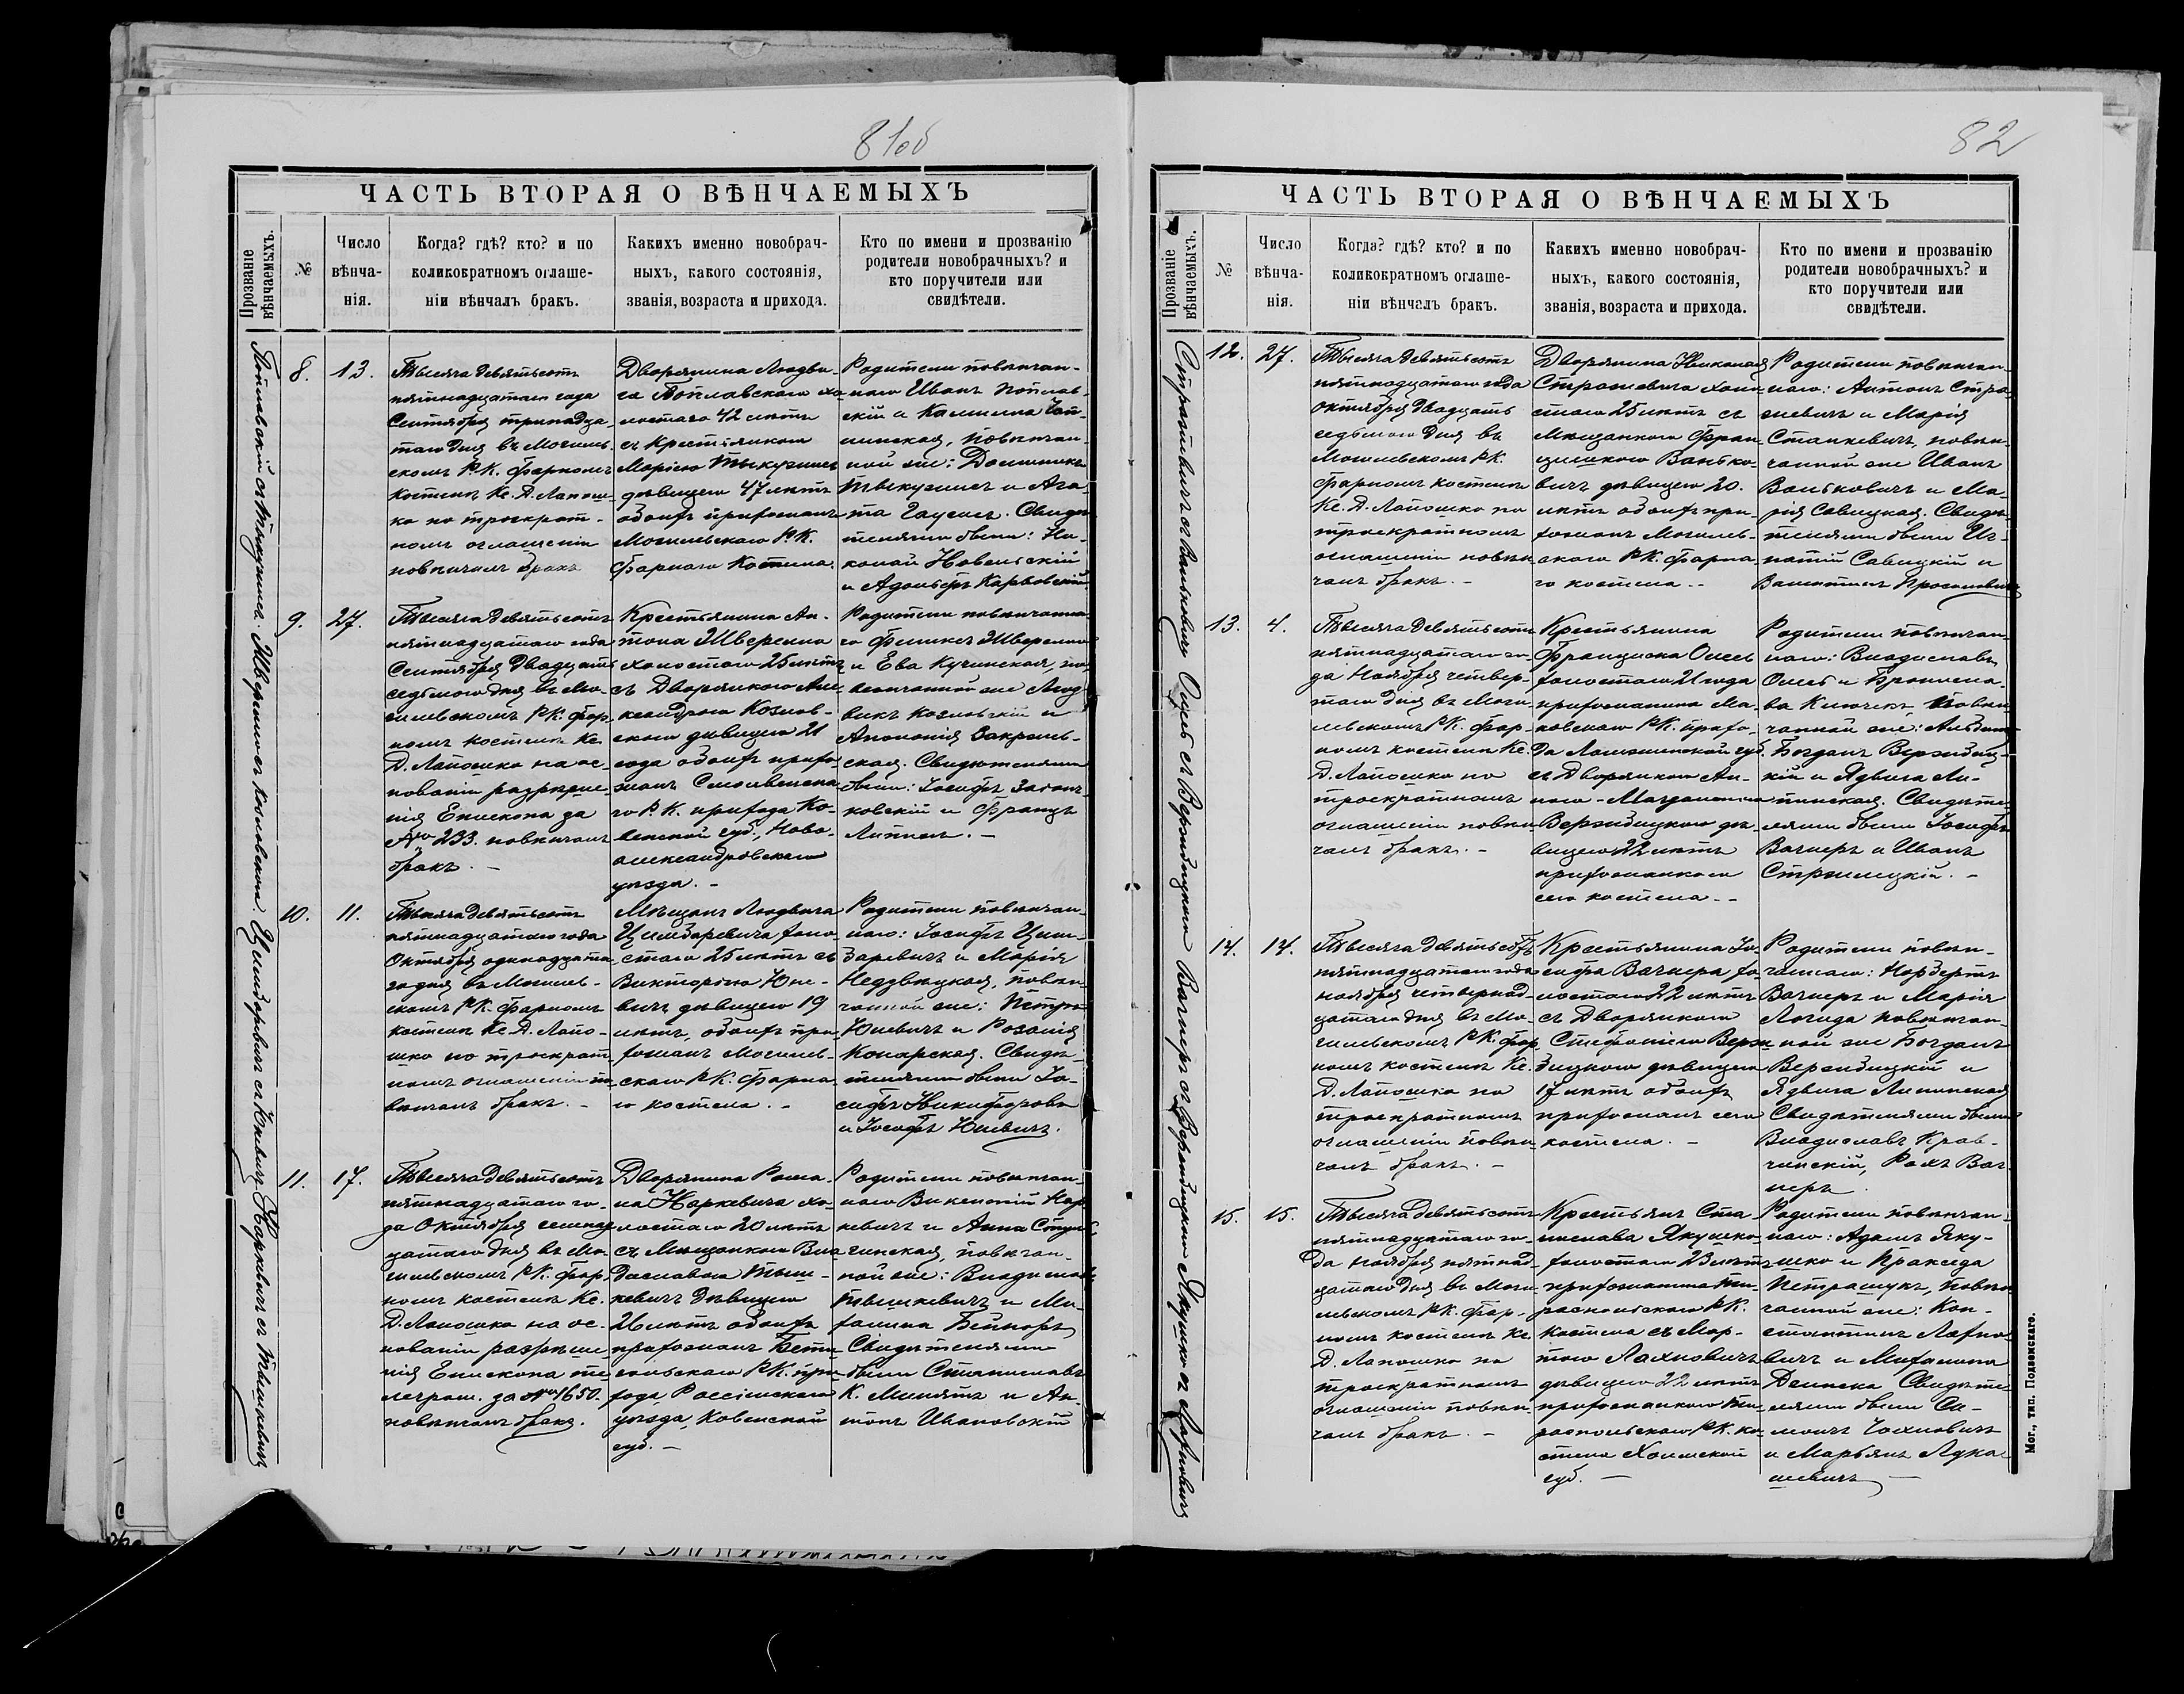 81об
ЧАСТЬ ВТОРАЯ О ВѢНЧАЕМЫХЪ
Прозваніе
вѣнчаемыхъ.
№
Число
вѣнча-
нія.
Когда? гдѣ? кто? и по
коликократномъ оглаше-
ніи вѣнчалъ бракъ.
Какихъ именно новобрач-
ныхъ, какого состоянія,
званія, возраста и прихода.
Кто по имени и прозванію
родители новобрачныхъ? и
кто поручители или
свидѣтели.
8.
13.
Тысяча девятьсотъ
пятнадцатаго года
Сентября тринадца-
таго дня въ Могилев-
скомъ Р.К. фарномъ
костелѣ Кс. Д. Лапош-
ко по троекрат-
номъ оглашеніи
повѣнчалъ бракъ
Дворянина Людви-
га Поплавскаго хо-
лостаго 42 лѣтъ
съ Крестьянкою
Маріею
дѣвицею 47 лѣтъ
обоихъ прихожанъ
Могилевскаго Р.К.
фарнаго Костела.
Родители повѣнчан-
наго Иванъ Поплав-
скій и
повѣнчан-
ной же: Доминикъ
и Ага-
та Свидѣ-
телями были: Ни-
колай Новельскій
и Адольфъ Карловскій
9.
27.
Тысяча девятьсотъ
пятнадцатаго года
Сентября двадцать
седьмого дня въ Мо-
гилевскомъ Р.К. фар-
номъ костелѣ Кс.
Д. Лапошко на ос-
нованіи разрѣше-
нія Епископа за
№ 233. повѣнчалъ
бракъ. -
Крестьянина Ан-
тона
холостаго 25 лѣтъ
съ Дворянкою Але-
ксандрою Козлов-
скою дѣвицею 21
года обоихъ прихо-
жанъ
го Р.К. прихода Ко-
венской губ., Ново-
александровскаго
уѣзда. -
Родители повѣнчанна-
го Феликсъ
и Ева Кучинская, по-
вѣнчанной же Люд-
викъ Козловскій и
Аполонія
ская. Свидѣтелями
были: Іосифъ
ковскій и Францъ
Липпель. -
10.
11.
Тысяча девятьсотъ
пятнадцатаго года
Октября одинадцата-
го дня въ Могилев-
скомъ Р.К. фарномъ
костелѣ Кс. Д. Лапо-
шко по троекрат-
номъ оглашеніи по-
вѣнчалъ бракъ. -
Мѣщанъ Людвига
Цимборевича холо-
стаго 25 лѣтъ съ
Викторіею Юне-
вичъ дѣвицею 19
лѣтъ, обоихъ при-
хожанъ Могилев-
скаго Р.К. фарна-
го костела. -
Родители повѣнчан-
наго: Іосифъ Цим-
боревичъ и Марія
повѣн-
чанной же: Петръ
Юневичъ и Розалія
Комарская. Свидѣ-
телями были Іо-
сифъ Никифоровъ
и Іосифъ Юневичъ.
11.
17.
Тысяча девятьсотъ
пятнадцатаго го-
да Октября семнад-
цатаго дня въ Мо-
гилевскомъ Р.К. фар-
номъ костелѣ Кс.
Д. Лапошко на ос-
нованіи разрѣше-
нія Епископа те-
леграм. за № 1650.
повѣнчалъ бракъ.
Дворянина Рома-
на Наркевича хо-
лостаго 20 лѣтъ
съ Мѣщанкою Вла-
диславою Тыш-
кевичъ дѣвицею
26 лѣтъ обоихъ
прихожанъ Бети-
гольскаго Р.К. при-
хода, Россіенскаго
уѣзда, Ковенской
губ. -
Родители повѣнчан-
наго Викентій Нар-
кевичъ и Анна
повѣнчан-
ной же: Владиславъ
Тышкевичъ и Ми-
халина
Свидѣтелями
были Станиславъ
К. и Ан-
тонъ Ивановскій
Поплавскій съ
съ Козловскою
Цимборевичъ съ Юневичъ
Наркевичъ съ Тышкевичъ
82
ЧАСТЬ ВТОРАЯ О ВѢНЧАЕМЫХЪ
Прозваніе
вѣнчаемыхъ.
№
Число
вѣнча-
нія.
Когда? гдѣ? кто? и по
коликократномъ оглаше-
ніи вѣнчалъ бракъ.
Какихъ именно новобрач-
ныхъ, какого состоянія,
званія, возраста и прихода.
Кто по имени и прозванію
родители новобрачныхъ? и
кто поручители или
свидѣтели.
12.
27.
Тысяча девятьсотъ
пятнадцатаго года
Октября двадцать
седьмого дня въ
Могилевскомъ Р.К.
фарномъ костелѣ
Кс. Д. Лапошко по
троекратномъ
оглашеніи повѣн-
чалъ бракъ. -
Дворянина Николая
холо-
стаго 25 лѣтъ съ
Мѣщанкою Фран-
цишкою Ванько-
вичъ дѣвицею 20.
лѣтъ обоихъ при-
хожанъ Могилев-
скаго Р.К. фарна-
го костела. -
Родители повѣнчан-
наго: Антонъ
и Марія
Станкевичъ, повѣн-
чанной же Иванъ
Ваньковичъ и Ма-
рія Савицкая. Свидѣ-
телями были Иг-
натій Савицкій и
Валентинъ
13.
4.
Тысяча девятьсотъ
пятнадцатаго го-
да Ноября четвер-
таго дня въ Моги-
левскомъ Р.К. фар-
номъ костелѣ Кс.
Д. Лапошко по
троекратномъ
оглашеніи повѣн-
чалъ бракъ. -
Крестьянина
Франциска Олесь
холостаго 21 года
прихожанина Ма-
ковскаго Р.К. прихо-
да Ломжинской губ.
съ Дворянкою Ан-
ною-Магдаленою
Вержбицкою дѣ-
вицею 22 лѣтъ
прихожанкою
сего костела. -
Родители повѣнчан-
наго: Владиславъ
Олесь и Бронисла-
ва повѣн-
чанной же:
Богданъ Вержбиц-
кій и Ядвига Ли-
пинская. Свидѣте-
лями были Іосифъ
Вагнеръ и Иванъ
Стржелецкій. -
14.
14.
Тысяча девятьсотъ
пятнадцатаго года
Ноября четырнад-
цатаго дня въ Мо-
гилевскомъ Р.К. фар-
номъ костелѣ Кс.
Д. Лапошко по
троекратномъ
оглашеніи повѣн-
чалъ бракъ. -
Крестьянина Іо-
сифа Вагнера хо-
лостаго 22 лѣтъ
съ Дворянкою
Стефаніею Верж-
бицкою дѣвицею
17 лѣтъ обоихъ
прихожанъ сего
костела. -
Родители повѣн-
чаннаго: Норбертъ
Вагнеръ и Марія
повѣнчан-
ной же Богданъ
Вержбицкій и
Ядвига Липинская
Свидѣтелями были
Владиславъ Крав-
чинскій, Рохъ Ваг-
неръ.
15.
15.
Тысяча девятьсотъ
пятнадцатаго го-
да Ноября пятнад-
цатаго дня въ Моги-
левскомъ Р.К. фар-
номъ костелѣ Кс.
Д. Лапошко по
троекратномъ
оглашеніи повѣн-
чалъ бракъ. -
Крестьянъ Ста-
нислава Якушко
холостаго 23 лѣтъ
прихожанина Ти-
распольскаго Р.К.
костела съ Мар-
тою Лахновичъ
дѣвицею 22 лѣтъ
прихожанкою Ти-
распольскаго Р.К. ко-
стела Холмской
губ. -
Родители повѣнчан-
наго: Адамъ Яку-
шко и Пракседа
Петрашукъ, повѣн-
чанной же: Кон-
стантинъ Лахно-
вичъ и Михалина
Свидѣте-
лями были Си-
монъ
и Марьянъ Лука-
шевичъ
съ Ваньковичъ
Олесь съ Вержбицкою
Вагнеръ съ Вержбицкою
Якушко съ Лахновичъ
Мог., тип. Подземскаго.